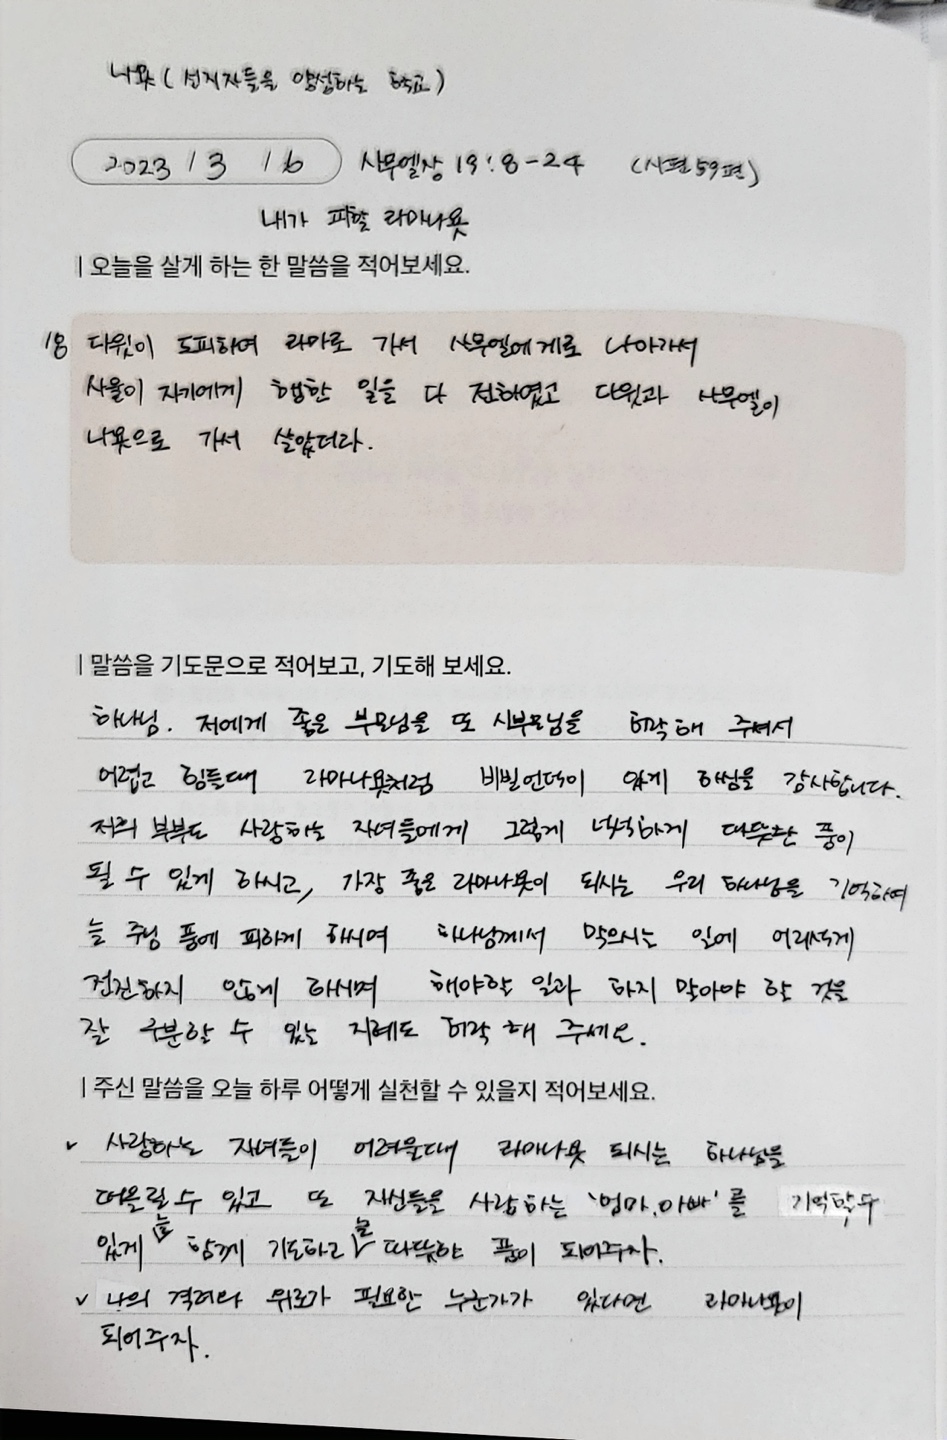 나욧 (선지자들을 양성하는 학교)
2023 / 3 / 6 사무엘상 19:8-24 (시편 59편)
내가 피할 라마나욧
| 오늘을 살게 하는 한 말씀을 적어보세요.
18 다윗이 도피하여 라마로 가서 사무엘에게로 나아가서
사울이 자기에게 행한 일을 다 전하였고 다윗과 사무엘이
나욧으로 가서 살았더라.
| 말씀을 기도문으로 적어보고, 기도해 보세요.
하나님. 저에게 좋은 부모님을 또 시부모님을 허락해 주셔서
어렵고 힘들때 라마나욧처럼 비빌언덕이 있게 하심을 감사합니다.
저희 부부도 사랑하는 자녀들에게 그렇게 넉넉하게 따뜻한 품이
될 수 있게 하시고, 가장 좋은 라마나욧이 되시는 우리 하나님을 기억하여
늘 주님 품에 피하게 하시며 하나님께서 막으시는 일에 어리석게
전진하지 않게 하시며 해야할 일과 하지 말아야 할 것을
잘 구분할 수 있는 지혜도 허락해 주세요.
| 주신 말씀을 오늘 하루 어떻게 실천할 수 있을지 적어보세요.
✓ 사랑하는 자녀들이 어려울때 라마나욧 되시는 하나님을
떠올릴 수 있고 또 자신들을 사랑하는 '엄마, 아빠'를 기억할 수
있게 늘 함께 기도하고 늘 따뜻한 품이 되어주자.
✓ 나의 격려와 위로가 필요한 누군가가 있다면 라마나욧이
되어주자.